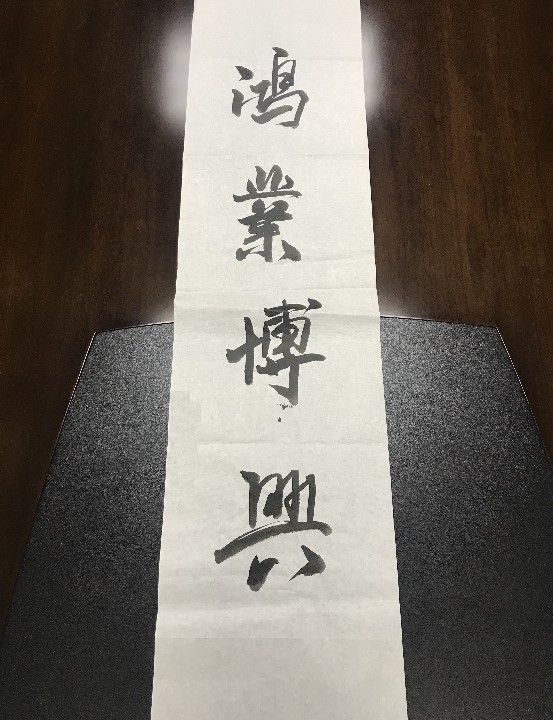 鴻業博興